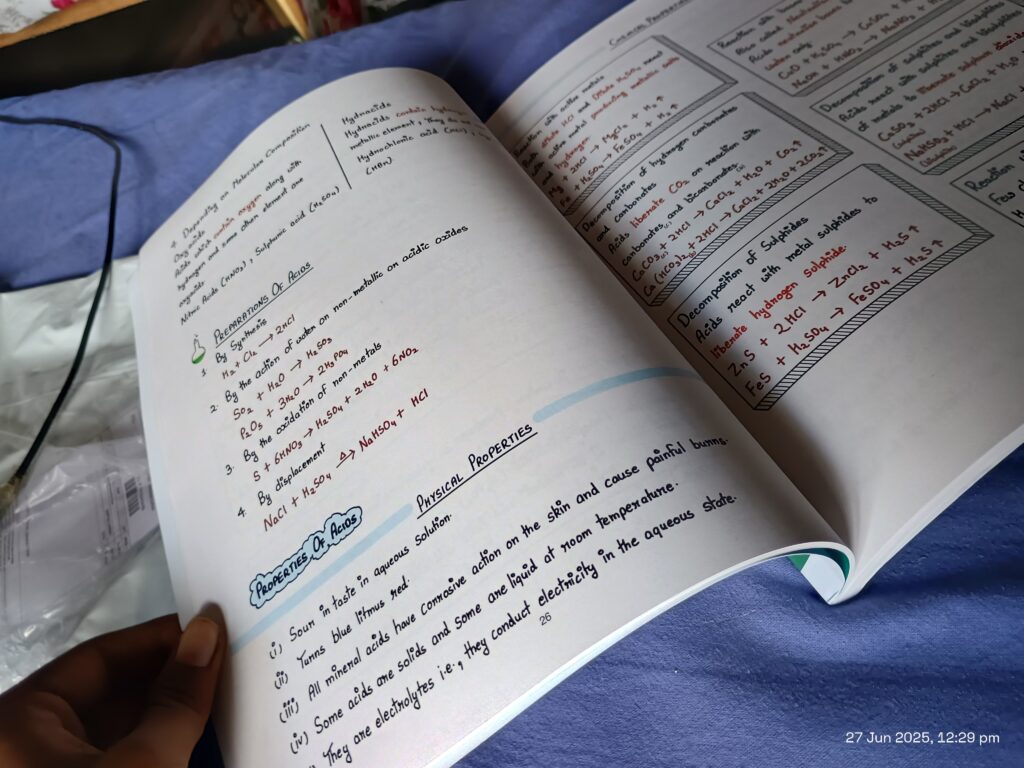 * Depending on Molecular Composition
Oxy acids
Acids which contain oxygen along with
hydrogen and some other element are
oxyacids
Nitric Acid (HNO₃), Sulphuric acid (H₂SO₄)
Hydracids
Hydracids contain
metallic element, They are
Hydrochloric acid
(HBr)
PREPARATIONS OF ACIDS
1 By Synthesis
H₂ + Cl₂ → 2HCl
2. By the action of water on non-metallic or acidic oxides
SO₂ + H₂O → H₂SO₃
P₂O₅ + 3H₂O → 2H₃PO₄
3. By the oxidation of non-metals
S + 6HNO₃ → H₂SO₄ + 2H₂O + 6NO₂
4 By displacement
NaCl + H₂SO₄ △→ NaHSO₄ + HCl
PROPERTIES OF ACIDS
PHYSICAL PROPERTIES
(i) Sour in taste in aqueous solution.
(ii) Turns blue litmus red.
(iii) All mineral acids have corrosive action on the skin and cause painful burns.
(iv) Some acids are solids and some are liquid at room temperature.
They are electrolytes i.e., they conduct electricity in the aqueous state.
26
CHEMICAL PROPERTIES
with active metals
HCl and Dilute H₂SO₄ react
metal producing metallic salts
hydrogen
HCl → MgCl₂ + H₂↑
H₂SO₄ → FeSO₄ + H₂↑
Decomposition of hydrogen carbonates
and carbonates
Acids liberate CO₂ on reaction with
carbonates and bicarbonates.
CaCO₃ + 2HCl → CaCl₂ + H₂O + CO₂↑
Ca(HCO₃)₂ + 2HCl → CaCl₂ + 2H₂O + 2CO₂↑
Decomposition of Sulphides
Acids react with metal sulphides to
liberate hydrogen sulphide.
ZnS + 2HCl → ZnCl₂ + H₂S↑
FeS + H₂SO₄ → FeSO₄ + H₂S↑
Reaction with
Also called
Acids neutralise
water only
CuO + H₂SO₄ → CuSO₄ +
Decomposition of sulphites and bisulphites
Acids react with sulphites and bisulphites
of metals to liberate sulphur dioxide
CaSO₃ + 2HCl → CaCl₂ + H₂O
NaHSO₃ + HCl → NaCl +
Reaction
27 Jun 2025, 12:29 pm